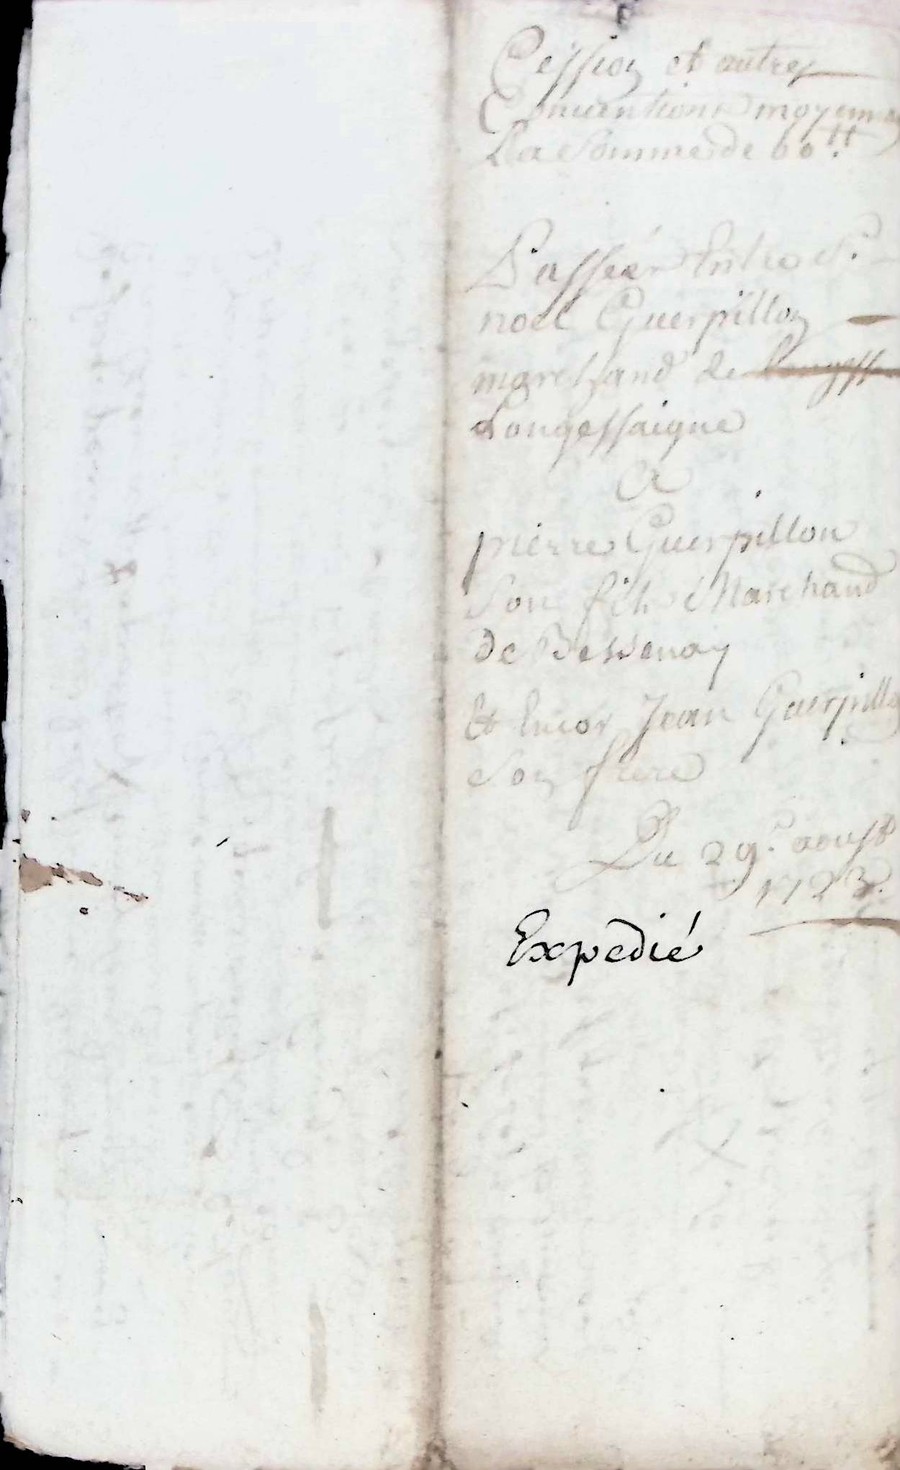 Cession et autres
Conventions moyennant
La Somme de 60ᵗᵗ.
Passées Entre Sʳ.
noel Guerpillon
marchand de ~~Longess~~
Longessaigne
A
pierre Guerpillon
Son fils Marchand
de Bessenay
Et Encor Jean Guerpillon
Son frere
Du 29ᵉ. aoust
1723.
Expedié